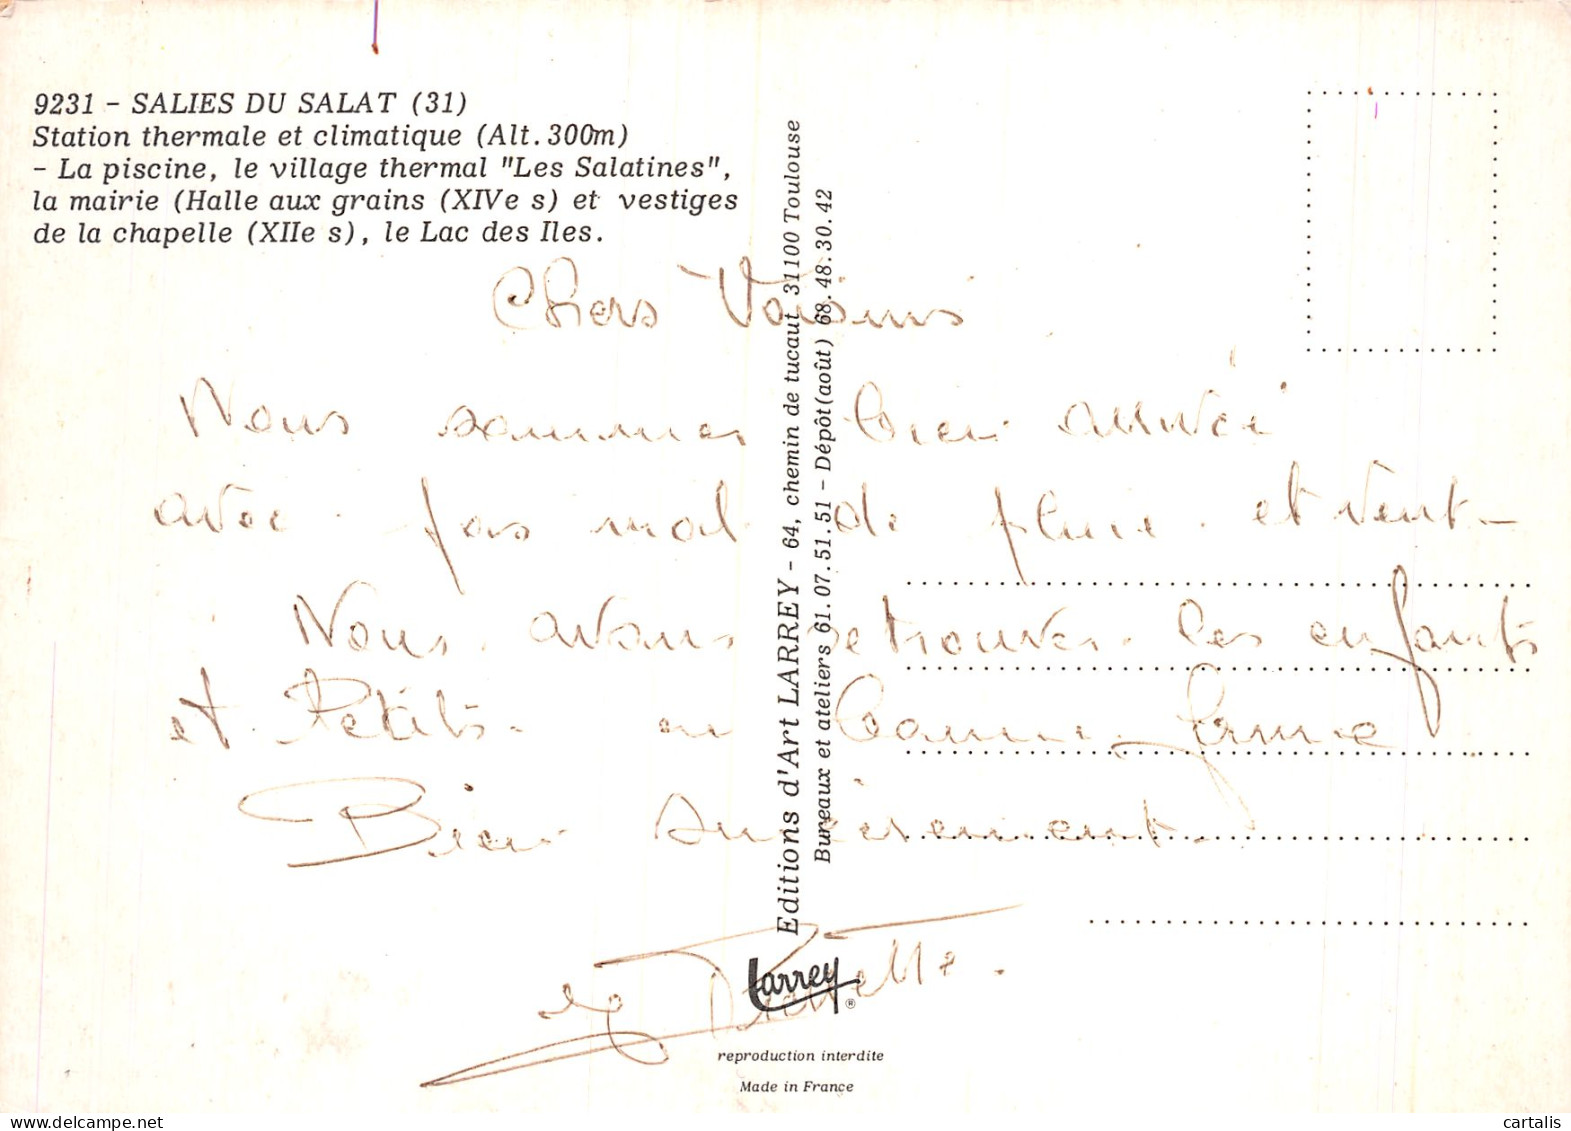 9231 - SALIES DU SALAT (31)
Station thermale et climatique (Alt. 300m)
- La piscine, le village thermal "Les Salatines",
la mairie (Halle aux grains (XIVe s) et vestiges
de la chapelle (XIIe s), le Lac des Iles.
Chers Voisins
Nous sommes bien arrivés
avec pas mal de pluie et vent -
Nous avons retrouver les enfants
et Petits en bonne forme
Bien sincèrement.
Editions d'Art LARREY - 64, chemin de tucaut 31100 Toulouse
Bureaux et ateliers 61.07.51.51 - Dépôt (août) 68.48.30.42
Larrey ®
reproduction interdite
Made in France
cartalis